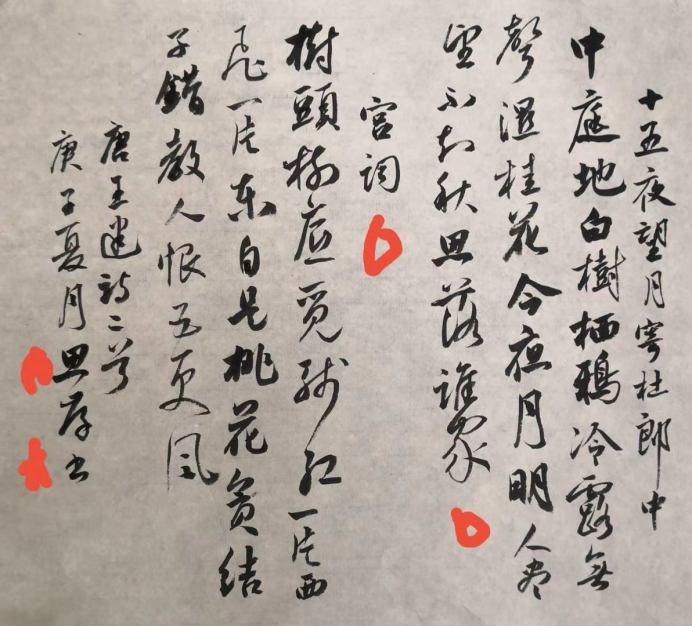 十五夜望月寄杜郎中
中庭地白樹栖鴉冷露無
聲濕桂花今夜月明人盡
望不知秋思落誰家
宫詞
樹頭樹底覓殘紅一片西
飛一片東自是桃花貪結
子錯教人恨五更風
唐王建詩二首
庚子夏月思存书